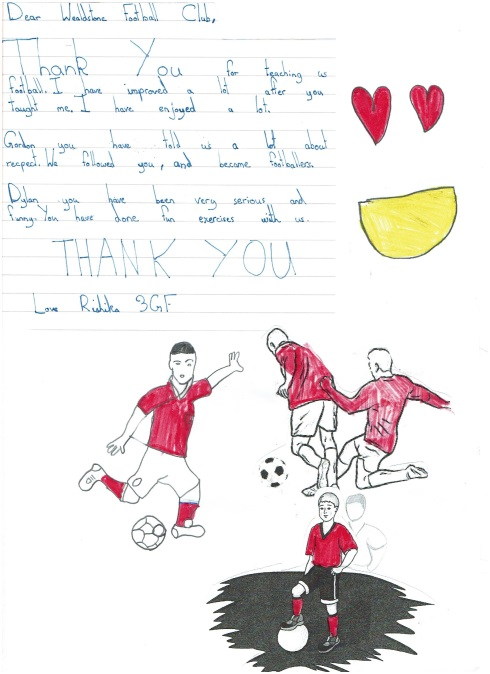 Dear Wealdstone Football Club,
Thank You for teaching us
football. I have improved a lot after you
taught me. I have enjoyed a lot.
Gordon you have told us a lot about
respect. We followed you, and became footballers.
Dylan you have been very serious and
funny. You have done fun exercises with us.
THANK YOU
Love Rishika 3GF